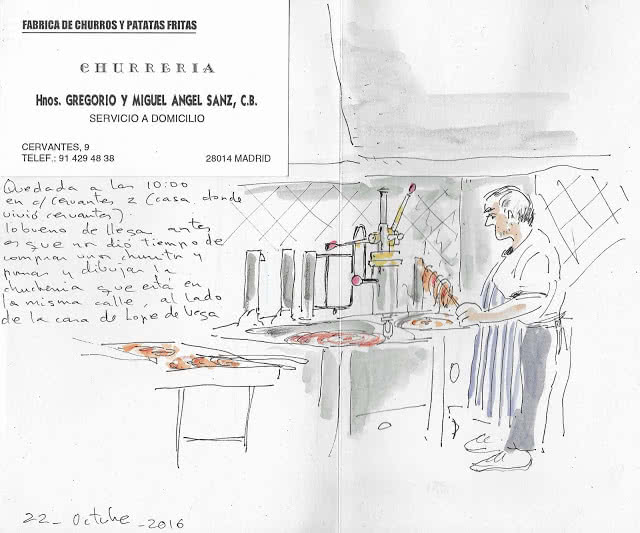 FABRICA DE CHURROS Y PATATAS FRITAS
CHURRERIA
Hnos. GREGORIO Y MIGUEL ANGEL SANZ, C.B.
SERVICIO A DOMICILIO
CERVANTES, 9
TELEF.: 91 429 48 38
28014 MADRID
Quedada a las 10:00
en c/ Cervantes 2 (casa donde
vivió cervantes).
lo bueno de llegar antes
es que me dió tiempo de
comprar unos churritos y
y dibujar la
churrería que está en
la misma calle, al lado
de la casa de Lope de Vega
22 - Octubre - 2016